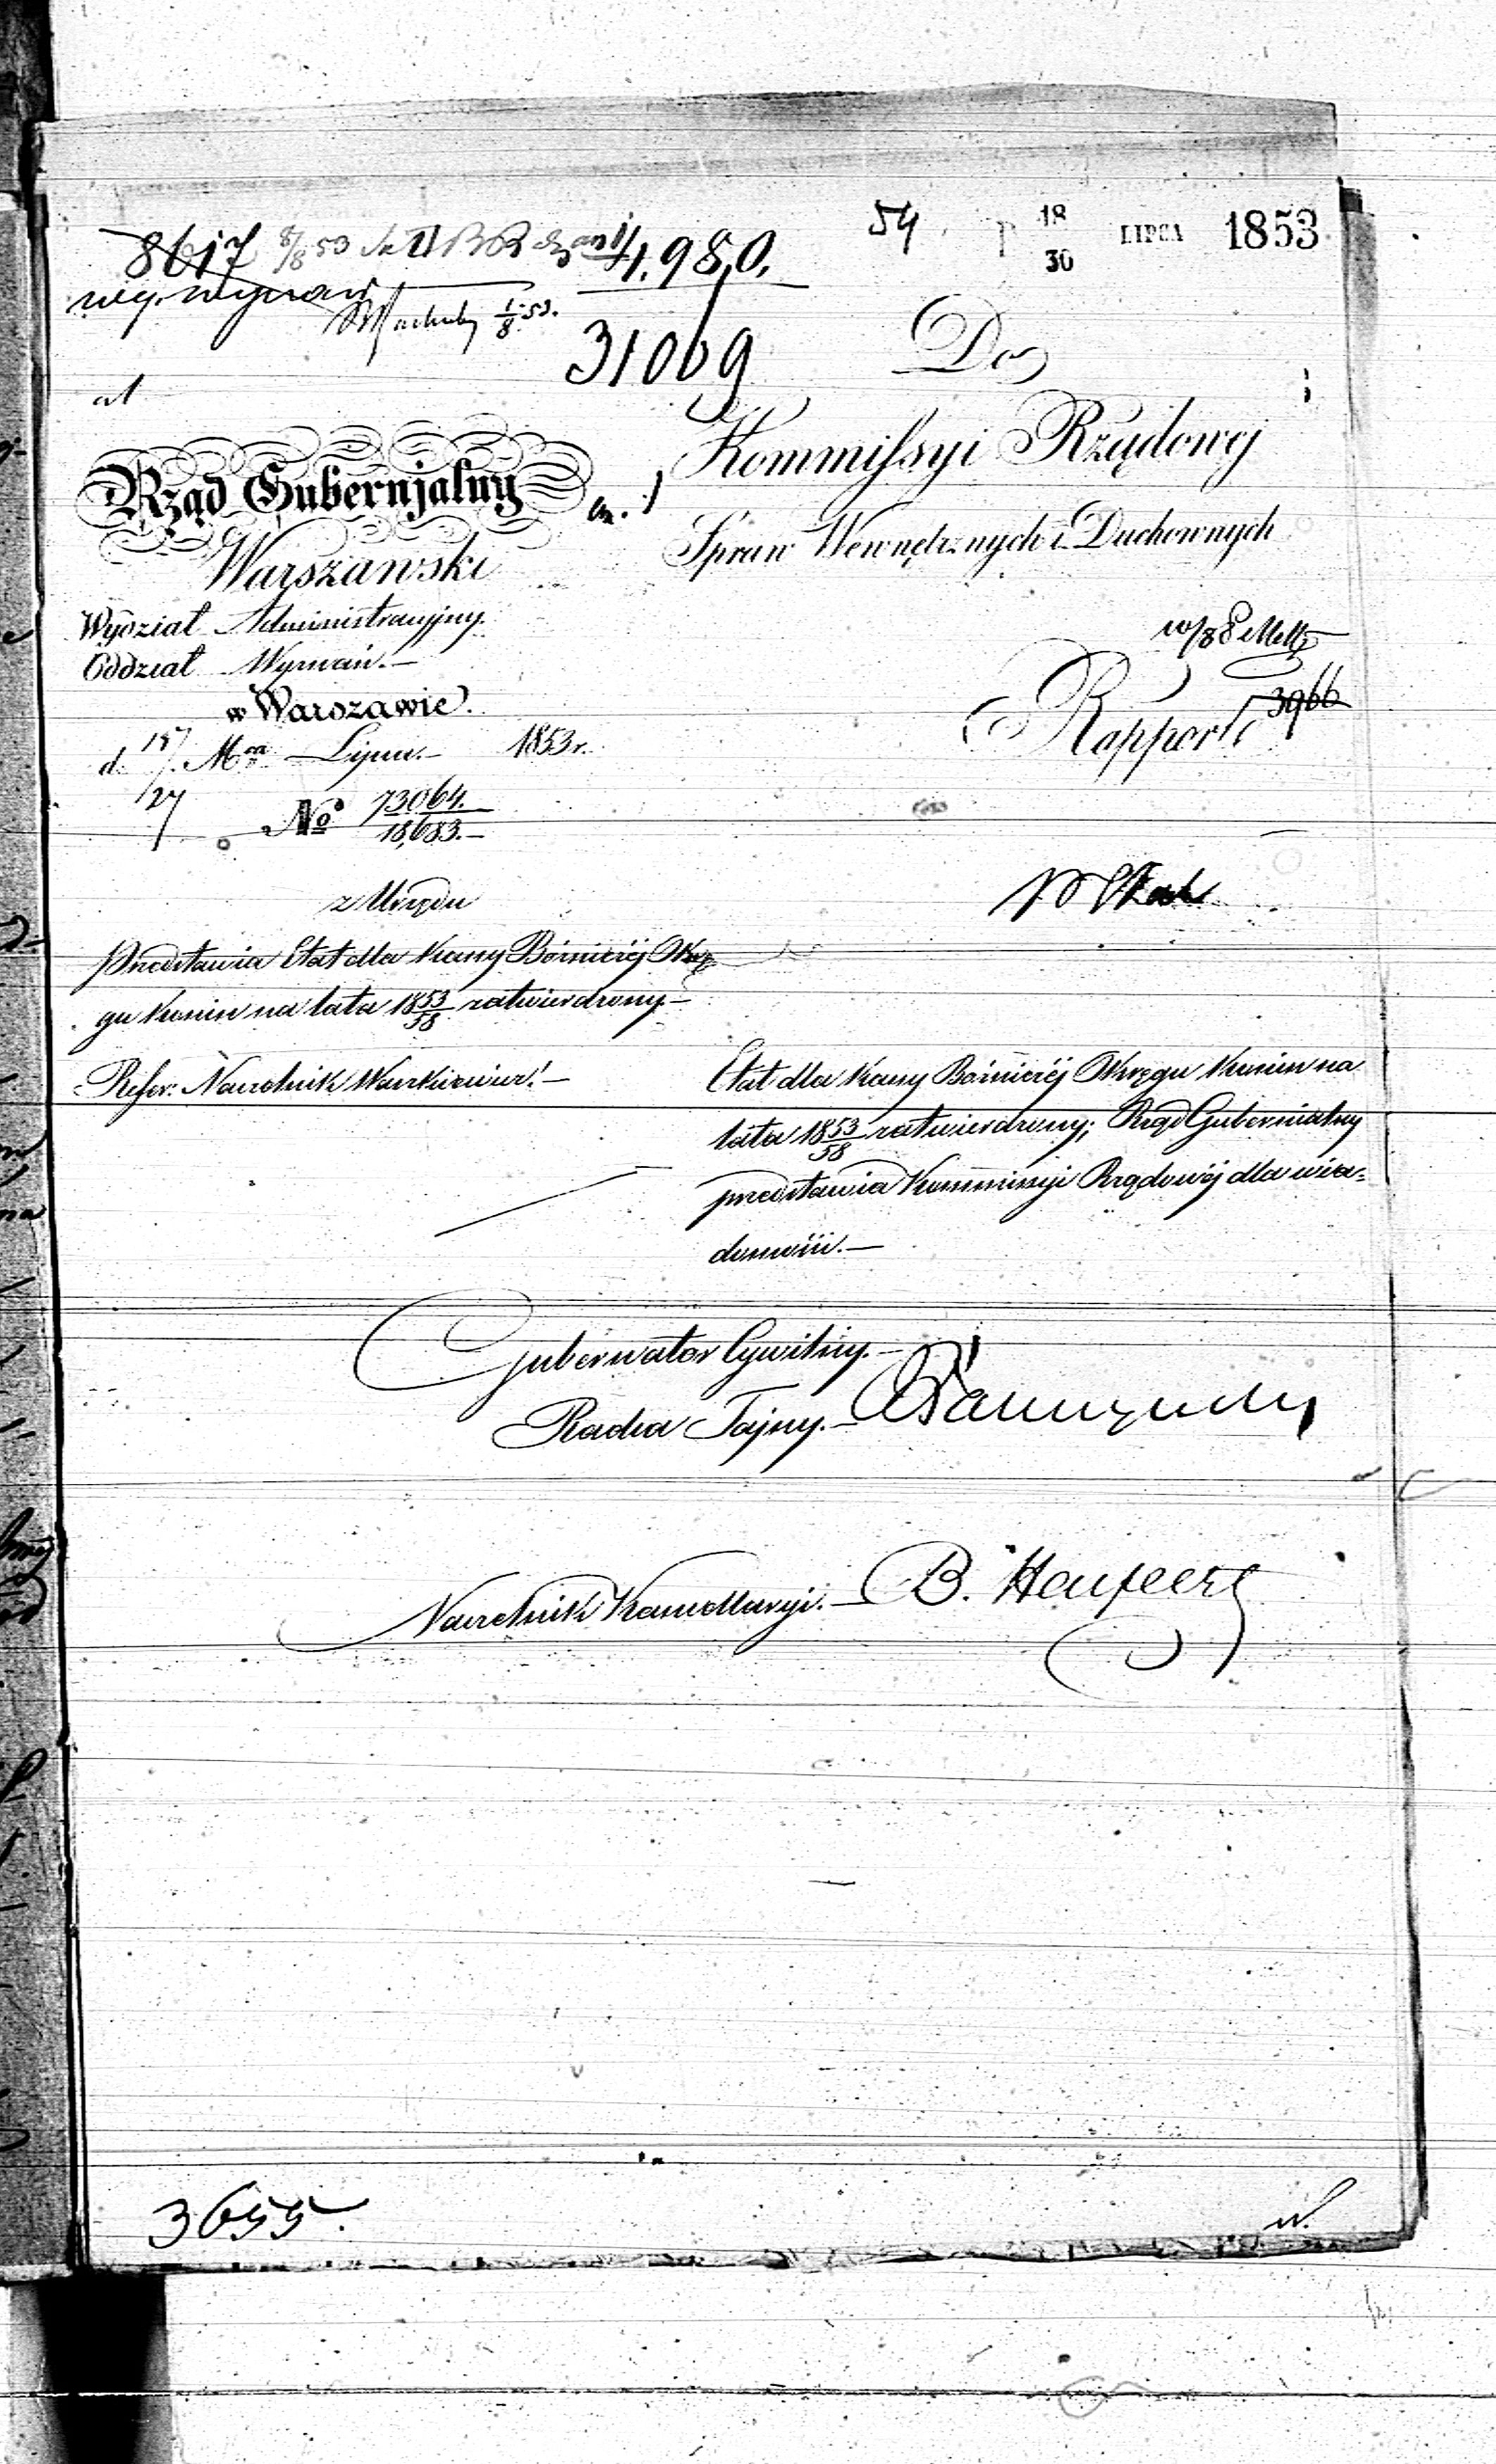 54 P 18/30 LIPCA 1853
8617 8/8 53
4,980.
1/8 53.
31069
Do
Kommissyi Rządowej
Spraw Wewnętrznych i Duchownych
Rząd Gubernjalny
Warszawski
Wydział Administracyjny.
Oddział Wyznań.—
w Warszawie.
d. 15/27 Mca Lipca.— 1853 r.
No 73064./18,683.—
Rapport
3966
z Urzędu
Przedstawia Etat dla Kassy Bóżniczéj Okrę
gu Konin na lata 1853/58 zatwierdzony.—
Refer: Naczelnik
Etat dla Kassy Bóżniczéj Okręgu Konin na
lata 1853/58 zatwierdzony; Rząd Gubernialny
przedstawia Kommissyi Rządowéj dla wia=
domości.—
Gubernator Cywilny.—
Radca Tajny.—
Naczelnik Kancellaryi.— B.
3655.